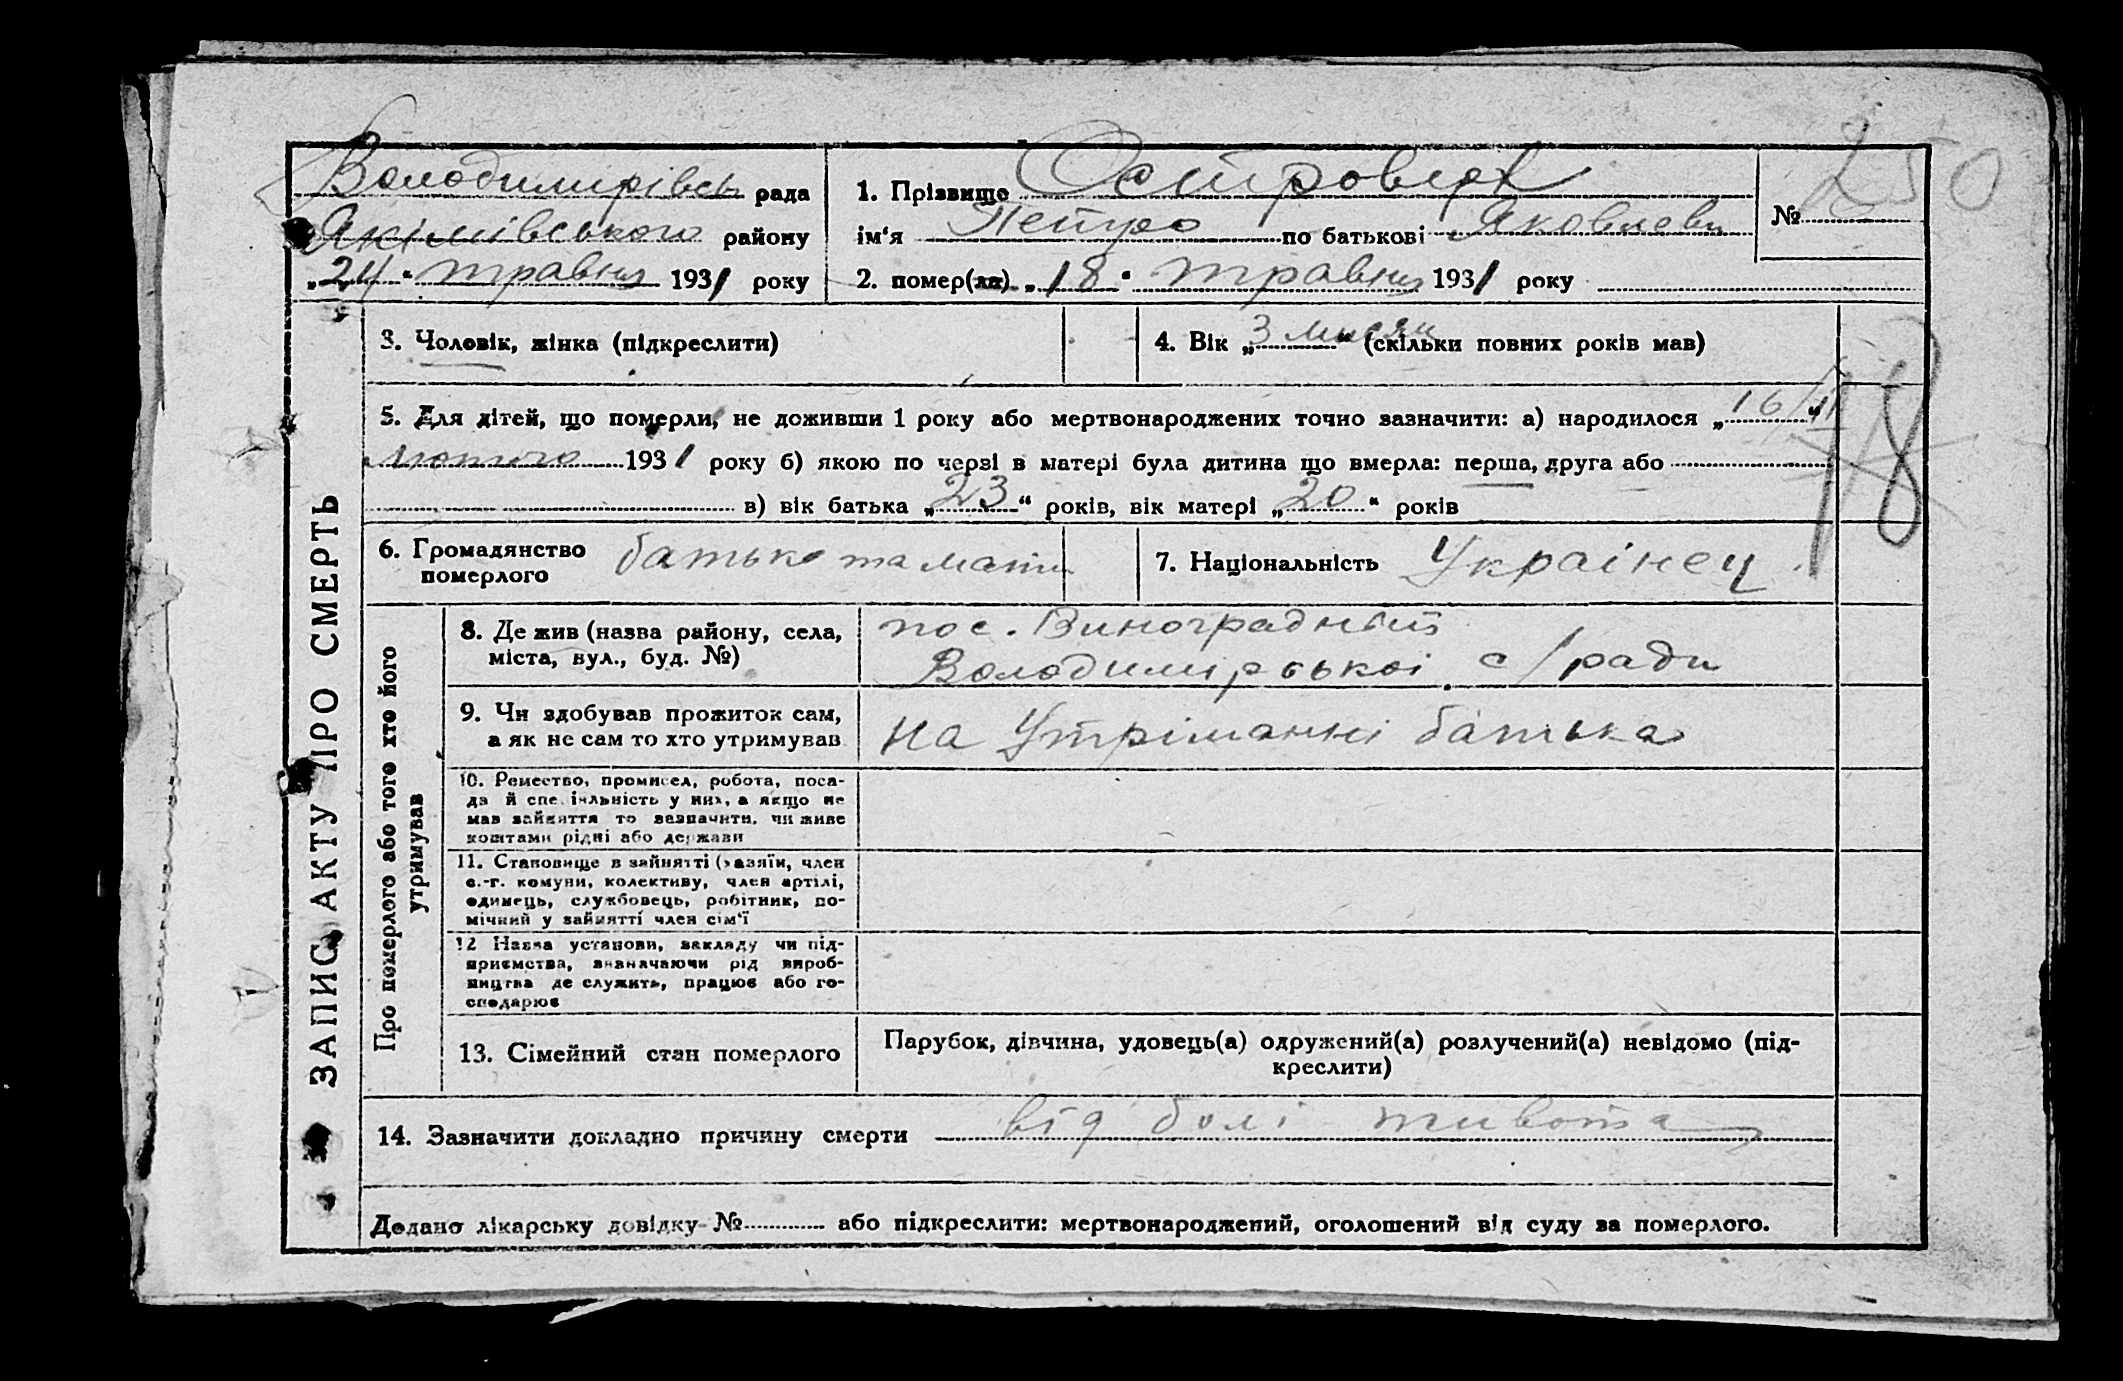 Володимирівсь рада
Якімівського району
„24“ травня 1931 року
1. Прізвище
ім‘я Петро по батькові Яковлеви
№ 250
2. помер(ла) „18“ травня 1931 року
ЗАПИС АКТУ ПРО СМЕРТЬ
3. Чоловік, жінка (підкреслити)
4. Вік „3 мисяц“ (скільки повних років мав)
5. Для дітей, що померли, не доживши 1 року або мертвонароджених точно зазначити: а) народилося „16/II“
лютого 1931 року б) якою по черзі в матері була дитина що вмерла: перша, друга або
в) вік батька „23“ років, вік матері „20“ років
18
6. Громадянство
померлого
батько та мати
7. Національність Украінец
Про померлого або того хто його
утримував
8. Де жив (назва району, села,
міста, вул., буд. №)
пос. Виноградний
Володимирськоі с/ради
9. Чи здобував прожиток сам,
а як не сам то хто утримував
на Утріманні батька
10. Ремество, промисел, робота, поса-
да й спеціяльність у них, а якщо не
мав зайняття то зазначити, чи живе
коштами рідні або держави
11. Становище в зайнятті (хазяїн, член
с.-г. комуни, колективу, член артілі,
одинець, службовець, робітник, по-
мічний у зайнятті член сім‘ї
12 Назва установи, закладу чи під-
приємства, визначаючи рід вироб-
ництва де служить, працює або го-
сподарює
13. Сімейний стан померлого
Парубок, дівчина, удовець(а) одружений(а) розлучений(а) невідомо (під-
креслити)
14. Зазначити докладно причину смерти від болі живота
Додано лікарську довідку № або підкреслити: мертвонароджений, оголошений від суду за померлого.